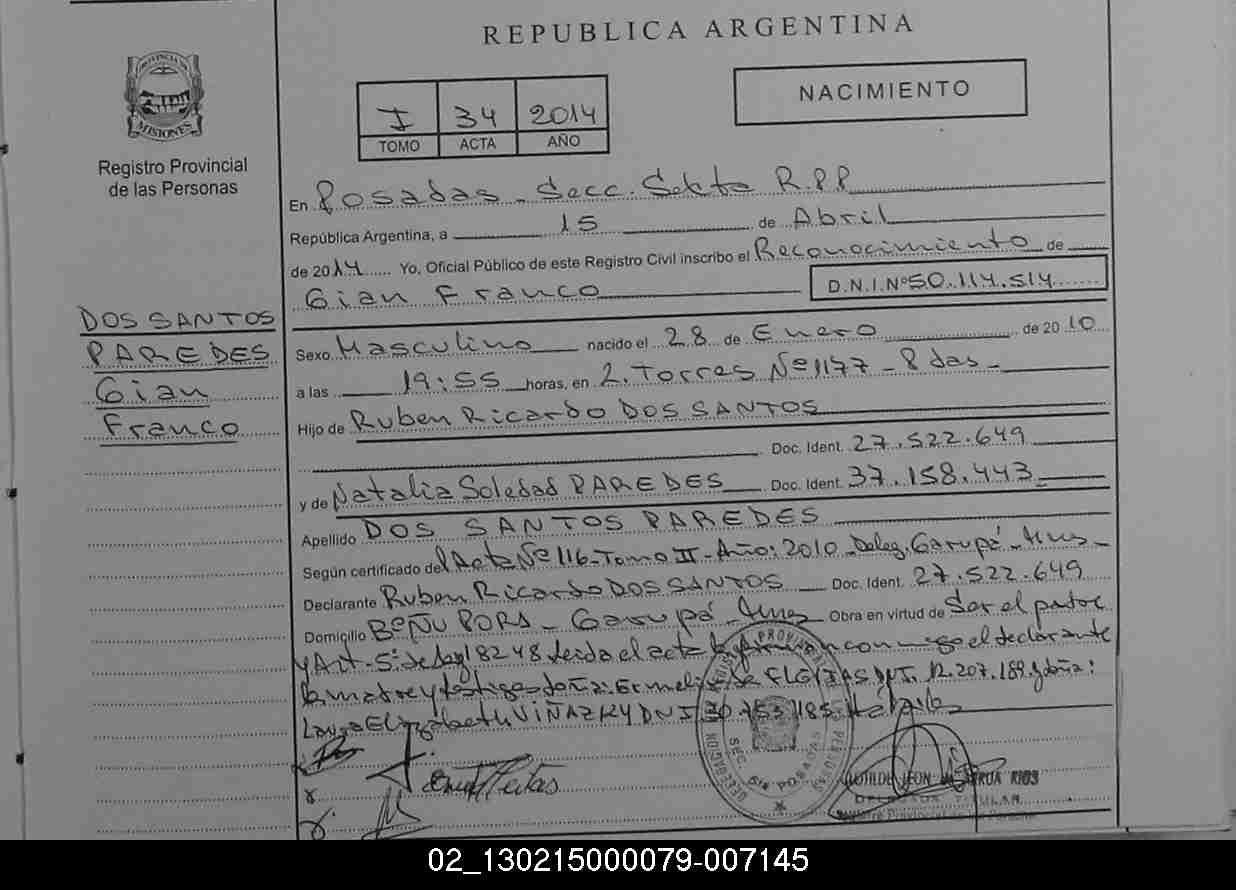 REPUBLICA ARGENTINA
PROVINCIA DE
MISIONES
Registro Provincial
de las Personas
I 34 2014
TOMO ACTA AÑO
NACIMIENTO
En Posadas - Secc. Sexta R.P.P
República Argentina, a 15 de Abril
de 2014 Yo, Oficial Público de este Registro Civil inscribo el Reconocimiento de
Gian Franco D.N.I.Nº 50.114.514
DOS SANTOS
PAREDES
Gian
Franco
Sexo Masculino nacido el 28 de Enero de 2010
a las 19:55 horas, en 2. Torres Nº 1177 - 8 das -
Hijo de Ruben Ricardo DOS SANTOS
Doc. Ident. 27.522.649
y de Natalia Soledad PAREDES Doc. Ident. 37.158.443
Apellido DOS SANTOS PAREDES
Según certificado del Acta Nº 116 - Tomo II - Año: 2010 - Deleg. Garupá - Mnes -
Declarante Ruben Ricardo DOS SANTOS Doc. Ident. 27.522.649
Domicilio Bº ÑU PORA - Garupá - Mnes Obra en virtud de Ser el padre
y Art. 5º de Ley 18248 leida el acta la firman conmigo el declarante
la madre y testigos doña: de FLEITAS DNI. 12.207.189 y doña:
Laura Elizabeth VIÑAZKY DNI 30.753.185
SEC. 6ta POSADAS
DELEGADA TITULAR
Registro Provincial de las Personas
02_130215000079-007145